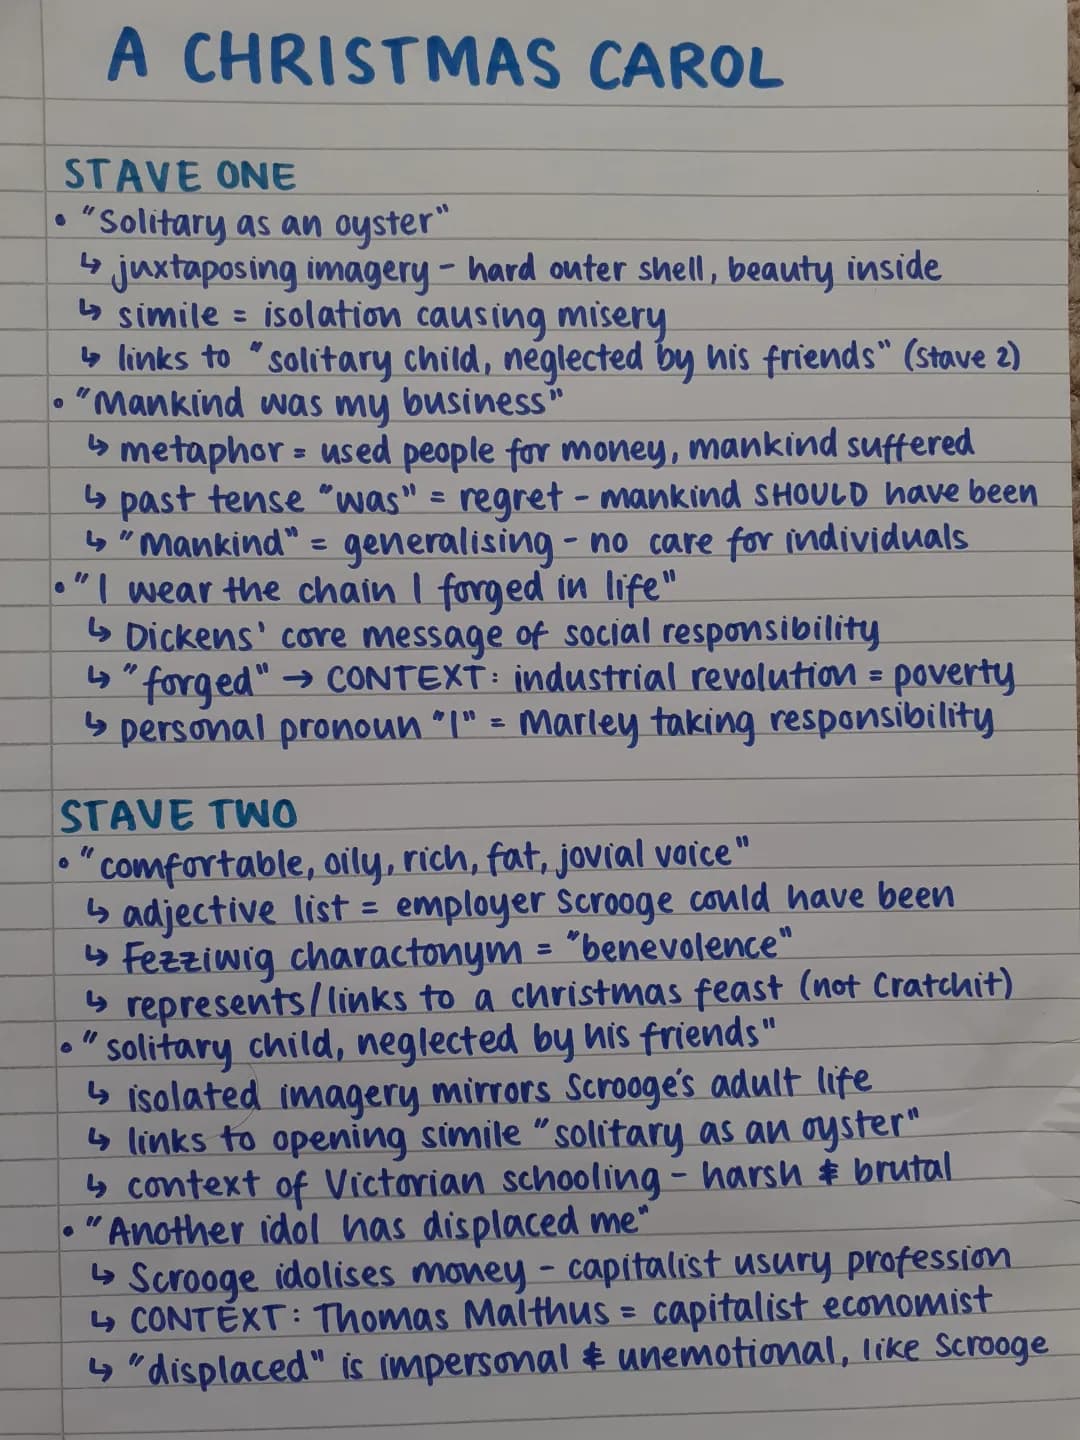 A CHRISTMAS CAROL
STAVE ONE
• "Solitary as an oyster"
↳ juxtaposing imagery - hard outer shell, beauty inside
↳ simile = isolation causing misery
↳ links to "solitary child, neglected by his friends" (Stave 2)
• "Mankind was my business"
↳ metaphor = used people for money, mankind suffered
↳ past tense "was" = regret - mankind SHOULD have been
↳ "Mankind" = generalising - no care for individuals
• "I wear the chain I forged in life"
↳ Dickens' core message of social responsibility
↳ "forged" → CONTEXT: industrial revolution = poverty
↳ personal pronoun "I" = Marley taking responsibility
STAVE TWO
• "comfortable, oily, rich, fat, jovial voice"
↳ adjective list = employer Scrooge could have been
↳ Fezziwig charactonym = "benevolence"
↳ represents/links to a christmas feast (not Cratchit)
• "solitary child, neglected by his friends"
↳ isolated imagery mirrors Scrooge's adult life
↳ links to opening simile "solitary as an oyster"
↳ context of Victorian schooling - harsh & brutal
• "Another idol has displaced me"
↳ Scrooge idolises money - capitalist usury profession
↳ CONTEXT: Thomas Malthus = capitalist economist
↳ "displaced" is impersonal & unemotional, like Scrooge